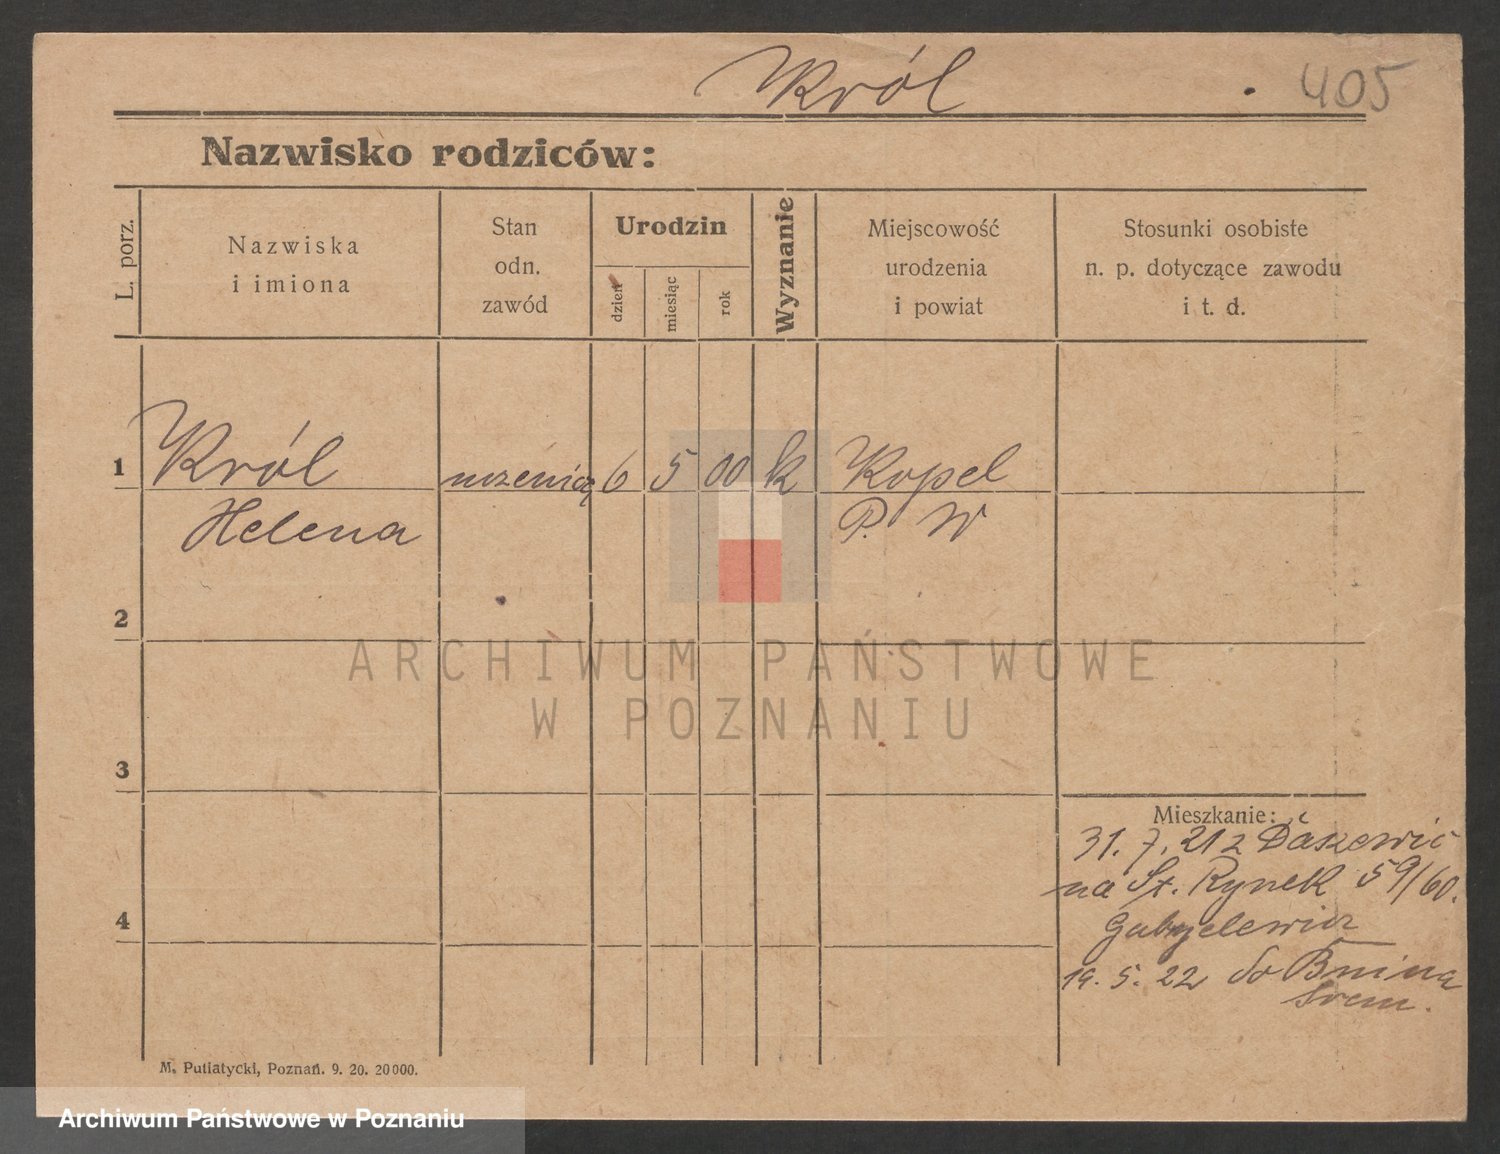 Król 405
Nazwisko rodziców:
L. porz.
Nazwiska
i imiona
Stan
odn.
zawód
Urodzin
dzień
miesiąc
rok
Wyznanie
Miejscowość
urodzenia
i powiat
Stosunki osobiste
n. p. dotyczące zawodu
i t. d.
1 Król uczenicą 6 5 00 k Kopel
Helena P. W
2
3
4
Mieszkanie:
31. 7. 21 z Daszewic
na St. Rynek 59/60.
19. 5. 22 do Bnina
Srem.
M. Putiatycki, Poznań. 9. 20. 20000.
ARCHIWUM PAŃSTWOWE
W POZNANIU
Archiwum Państwowe w Poznaniu